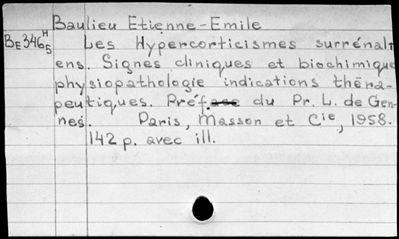 Baulieu Etienne-Emile
BE346H5 Les Hypercorticismes surrénali
ens. Signes cliniques et biochimique
physiopathologie indications théra-
peutiques. Préf. du Pr. L. de Gen-
nes. Paris, Masson et Cie, 1958.
142 p. avec ill.